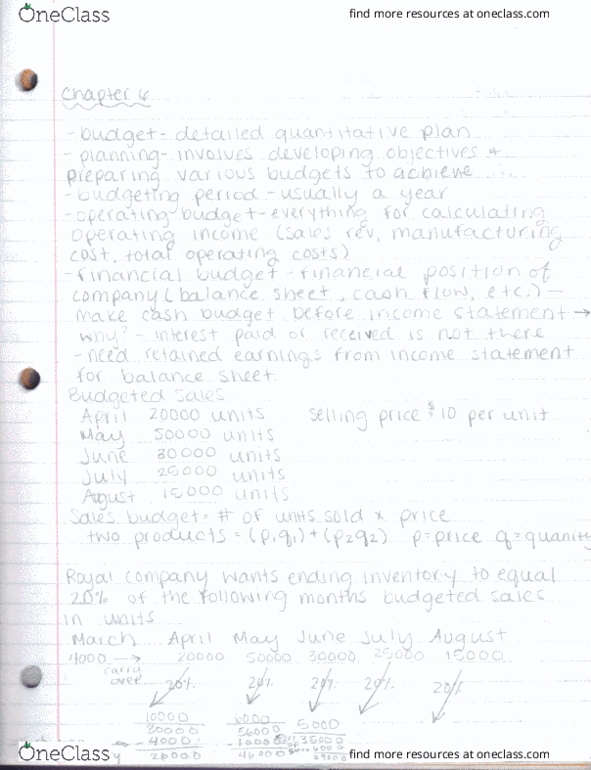 OneClass
find more resources at oneclass.com
Chapter 6
- budget - detailed quantitative plan
- planning - involves developing objectives +
preparing various budgets to achieve
- budgeting period - usually a year
- operating budget - everything for calculating
operating income (sales rev, manufacturing
cost, total operating costs)
- financial budget - financial position of
company (balance sheet, cash flow, etc.) -
make cash budget before income statement →
why? - interest paid or received is not there
- need retained earnings from income statement
for balance sheet
Budgeted sales
April 20000 units selling price $10 per unit
May 50000 units
June 30000 units
July 25000 units
August 15000 units
Sales budget = # of units sold x price
two products = (p1q1) + (p2q2) p=price q=quanity
Royal company wants ending inventory to equal
20% of the following months budgeted sales
in units
March April May June July August
4000 → 20000 50000 30000 25000 15000
carry
over 20% 20% 20% 20% 20%
10000 6000 5000
30000 56000 35000
- 4000 - 10000
26000 46000 29000
OneClass
find more resources at oneclass.com